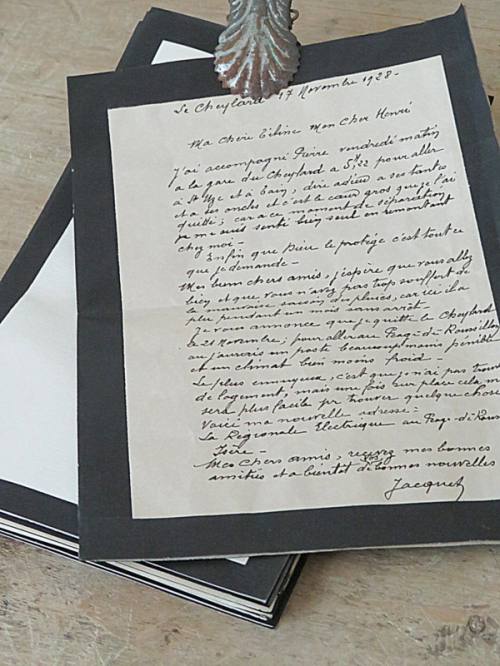 Le Cheylard 17 Novembre 1928 -
Ma Chère Mon Cher Henri
J'ai accompagné Pierre vendredi matin
a la gare du Cheylard a 5H22 pour aller
a St Uze et a Tain, dire adieu a ses tantes
et a ses oncles et c'est le cœur gros que je l'ai
quitté; car a ce moment de séparation
je me suis senti bien seul en remontant
chez moi -
Enfin que Dieu le protège c'est tout ce
que je demande -
Mes bien chers amis, j'espère que vous allez
bien et que vous n'avez pas trop souffert de
la mauvaise saison des pluies, car ici il a
plu pendant un mois sans arrêt.
Je vous annonce que je quitte le Cheylard
le 21 Novembre; pour aller au Péage-de-Roussillon
ou j'aurais un poste beaucoup moins pénible
et un climat bien moins froid -
Le plus ennuyeux, c'est que je n'ai pas trouvé
de logement, mais une fois sur place cela me
sera plus facile pr trouver quelque chose
Voici ma nouvelle adresse:
La Régionale Electrique au Péage-de-Rous
Isère -
Mes chers amis, recevez mes bonnes
amitiés et a bientôt de bonnes nouvelles
Jacquet